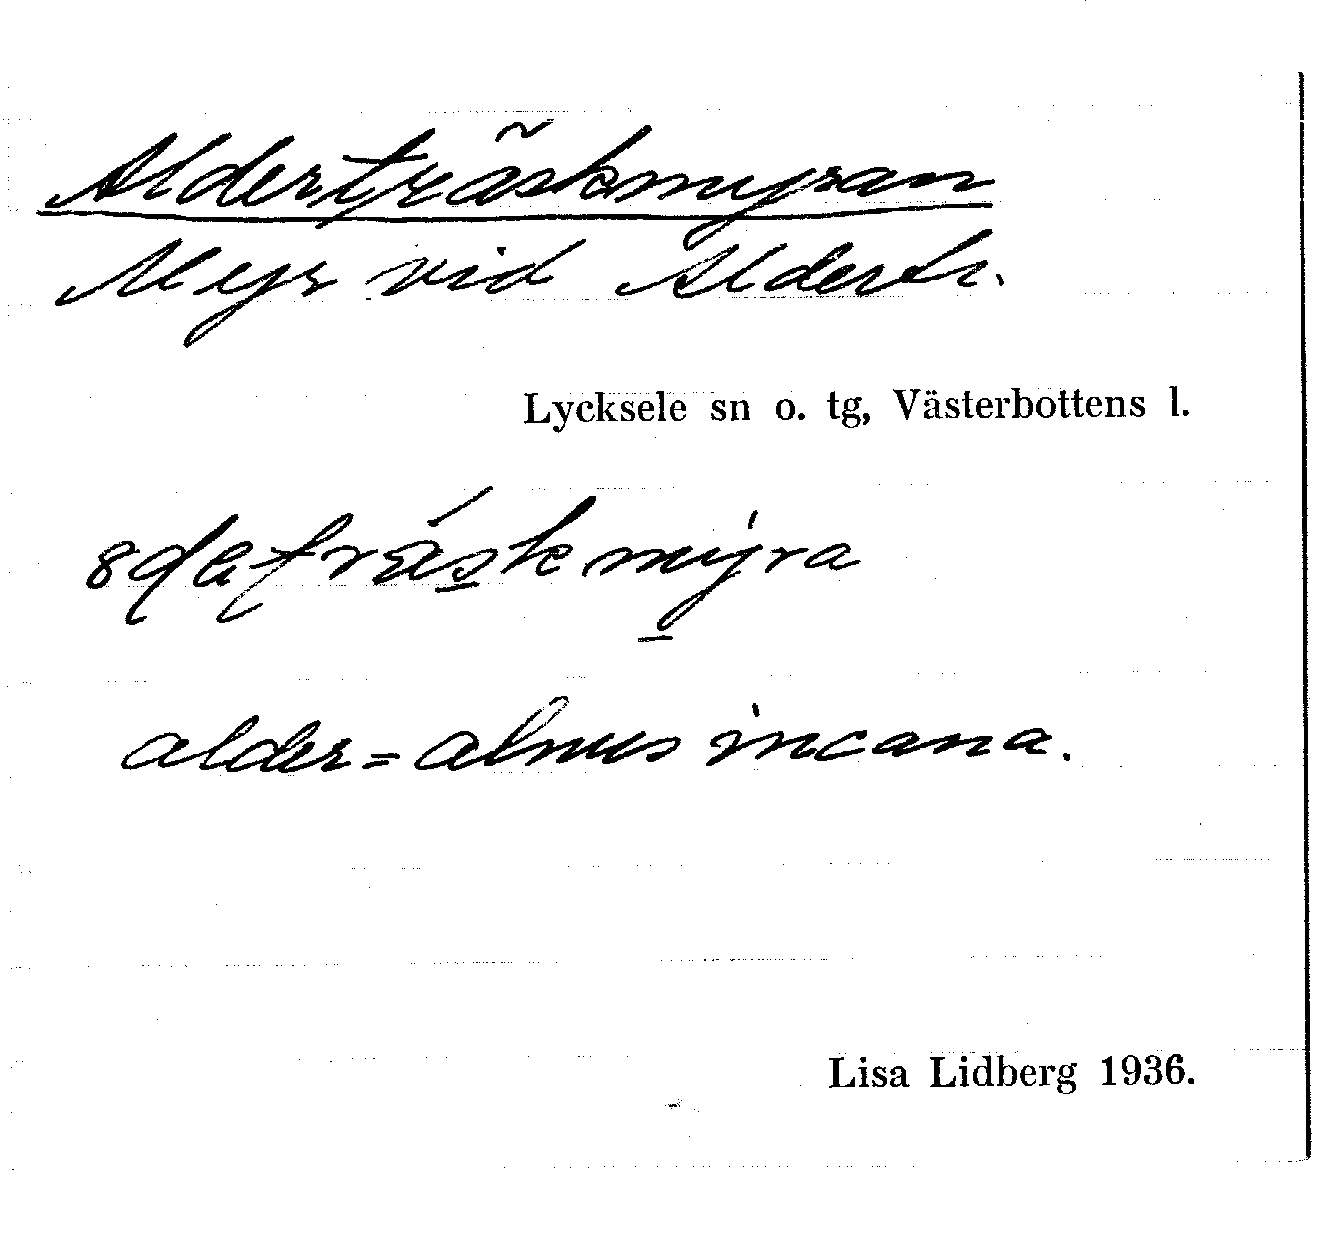 Alderträskmyran
Myr vid Aldertr.
Lycksele sn o. tg, Västerbottens l.
alder = alnus incana.
Lisa Lidberg 1936.